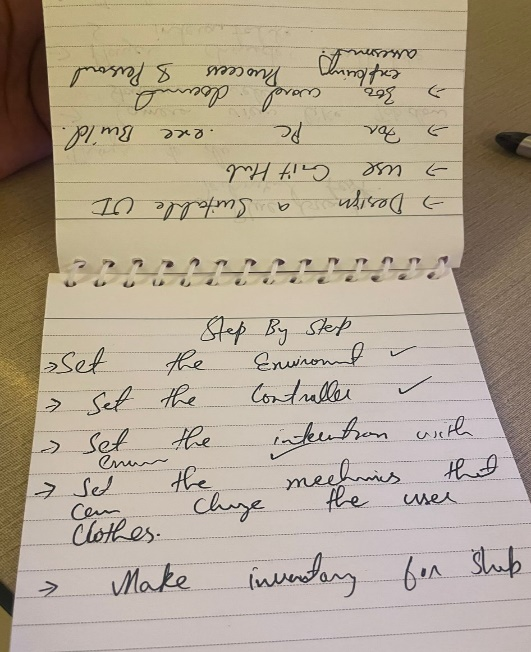 → Design a Suitable UI
→ use Git Hub
→ For PC .exe Build.
→ 300 word document
explaing Process & Personal
assesment.
Step By Step
→ Set the Enviromnt ✓
→ Set the Controller ✓
→ Set the with
→ Set the mechnics that
can chnge the user
Clothes.
→ Make inventory for